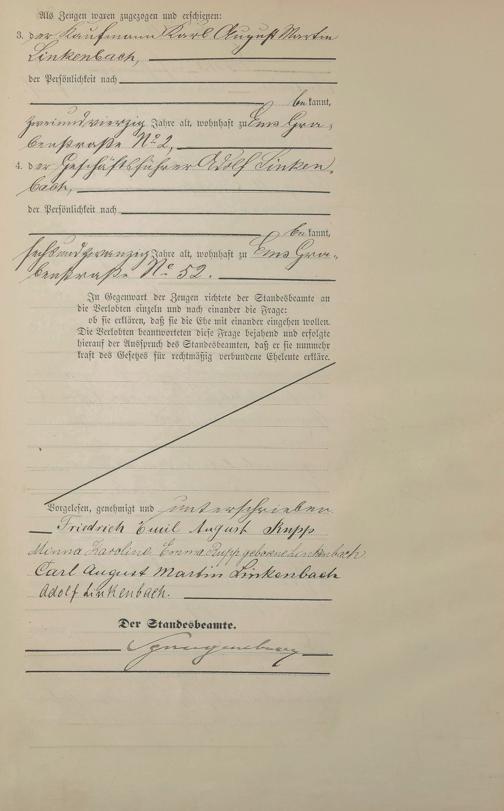 Als Zeugen waren zugezogen und erschienen:
3. der Kaufmann Karl August Martin
Linkenbach,
der Persönlichkeit nach
be kannt,
zweiundvierzig Jahre alt, wohnhaft zu Ems Gra-
benstraße No 2,
4. der Geschäftsführer Adolf Linken-
bach,
der Persönlichkeit nach
be kannt,
sechsundzwanzig Jahre alt, wohnhaft zu Ems Gra-
benstraße No 52.
In Gegenwart der Zeugen richtete der Standesbeamte an
die Verlobten einzeln und nach einander die Frage:
ob sie erklären, daß sie die Ehe mit einander eingehen wollen.
Die Verlobten beantworteten diese Frage bejahend und erfolgte
hierauf der Ausspruch des Standesbeamten, daß er sie nunmehr
kraft des Gesetzes für rechtmäßig verbundene Eheleute erkläre.
Vorgelesen, genehmigt und unterschrieben
Friedrich Emil August Rupp
Minna Karoline Emma Rupp geborne Linkenbach
Carl August Martin Linkenbach
Adolf Linkenbach.
Der Standesbeamte.